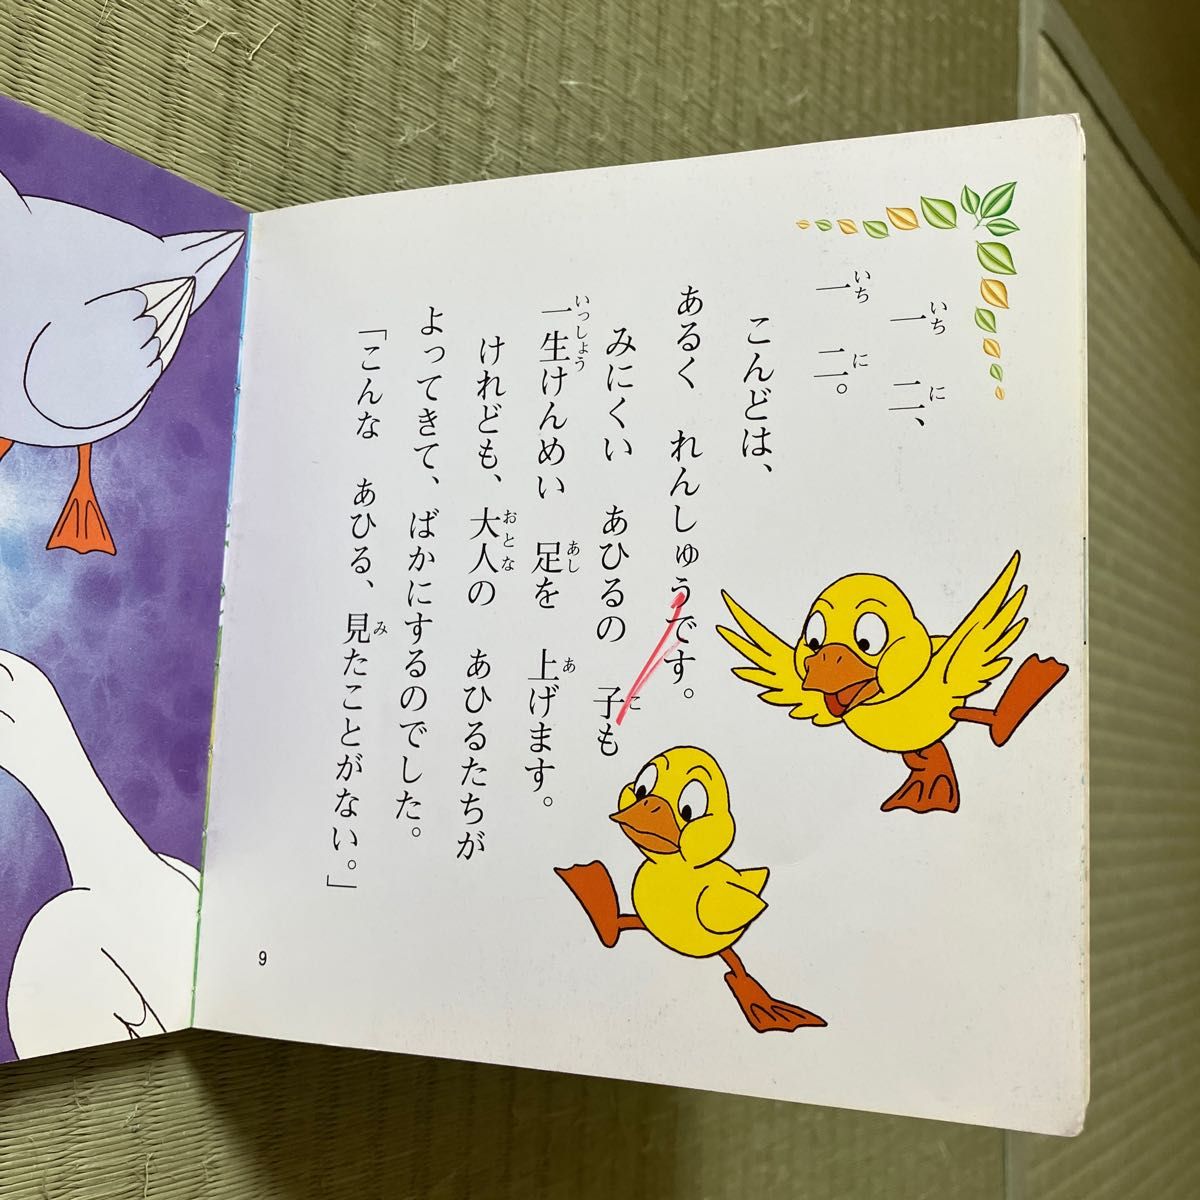 一 二、
一 二。
こんどは、
あるく れんしゅうです。
みにくい あひるの 子も
一生けんめい 足を 上げます。
けれども、大人の あひるたちが
よってきて、ばかにするのでした。
「こんな あひる、見たことがない。」
いち に
いち に
こ
いっしょう あし あ
おとな
み
9